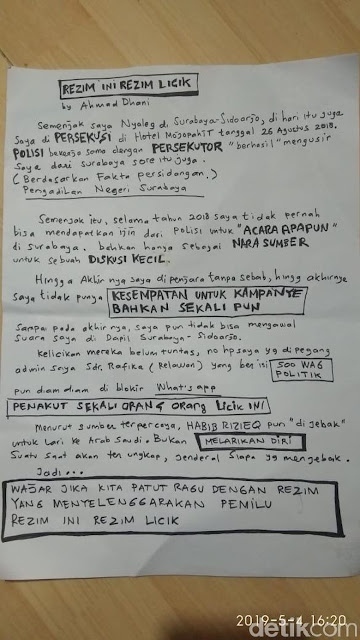 REZIM INI REZIM LICIK
by Ahmad Dhani
Semenjak saya Nyaleg di Surabaya-Sidoarjo, di hari itu juga
Saya di PERSEKUSI di Hotel Mojopahit tanggal 26 Agustus 2018.
POLISI bekerja sama dengan PERSEKUTOR "berhasil" mengusir
saya dari Surabaya sore itu juga.
(Berdasarkan Fakta persidangan.)
Pengadilan Negeri Surabaya
Semenjak itu, selama tahun 2018 saya tidak pernah
bisa mendapatkan izin dari Polisi untuk "ACARA APAPUN"
di Surabaya. bahkan hanya sebagai NARA SUMBER
untuk sebuah DISKUSI KECIL.
Hingga Akhirnya saya di penjara tanpa sebab, hingg akhirnya
saya tidak punya KESEMPATAN UNTUK KAMPANYE
BAHKAN SEKALI PUN
Sampai pada akhirnya, saya pun tidak bisa mengawal
suara saya di Dapil Surabaya - Sidoarjo.
Kelicikan mereka belum tuntas, no hp saya yg di pegang
admin saya Sdr. Rafika (Relawan) yang berisi 500 WAG
POLITIK
pun diam diam di blokir What's app
PENAKUT SEKALI ORANG ORANG LICIK INI
Menurut sumber terpercaya, HABIB RIZIEQ pun "di jebak"
untuk Lari ke Arab Saudi. Bukan MELARIKAN DIRI
Suatu saat akan terungkap, jenderal siapa yg menjebak.
Jadi...
WAJAR JIKA KITA PATUT RAGU DENGAN REZIM
YANG MENYELENGGARAKAN PEMILU
REZIM INI REZIM LICIK
detikcom
2019-5-4 16:20